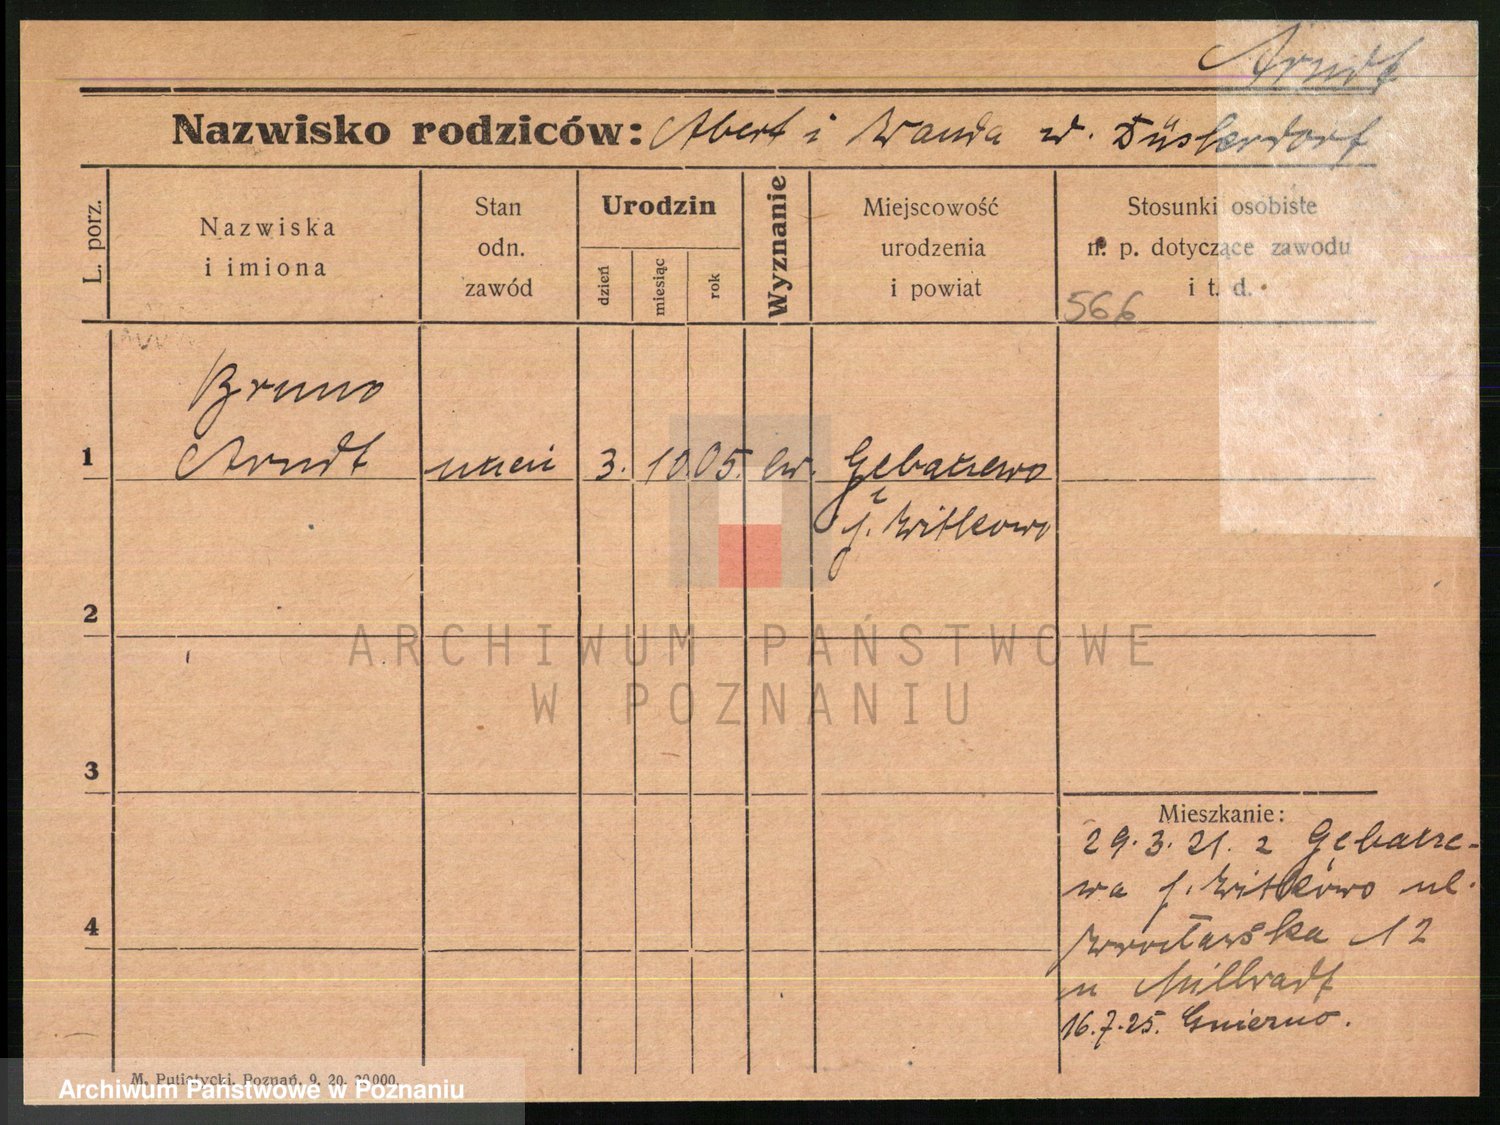 Arndt
Nazwisko rodziców: Abert i Wanda z d. Düsterdorf
L. porz.
Nazwiska
i imiona
Stan
odn.
zawód
Urodzin
dzień
miesiąc
rok
Wyznanie
Miejscowość
urodzenia
i powiat
Stosunki osobiste
n. p. dotyczące zawodu
i t. d.
566
Bruno
1 Arndt uczeń 3. 10. 05. ew. Gębarzewo
p. Witkowo
2
3
4
Mieszkanie:
29.3.21. z Gębarze-
wa p. Witkowo ul.
Wrocławska 12
u Millradt
16.7.25. Gniezno.
ARCHIWUM PAŃSTWOWE
W POZNANIU
M. Putiatycki, Poznań, 9. 20. 20 000.
Archiwum Państwowe w Poznaniu